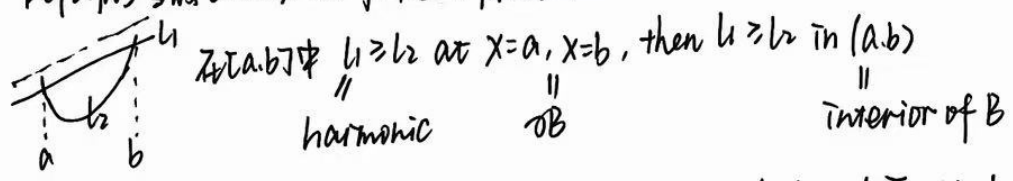 l₁
在[a.b]中 l₁≥l₂ at x=a, x=b, then l₁≥l₂ in (a.b)
l₂
||
||
||
harmonic
∂B
interior of B
a
b